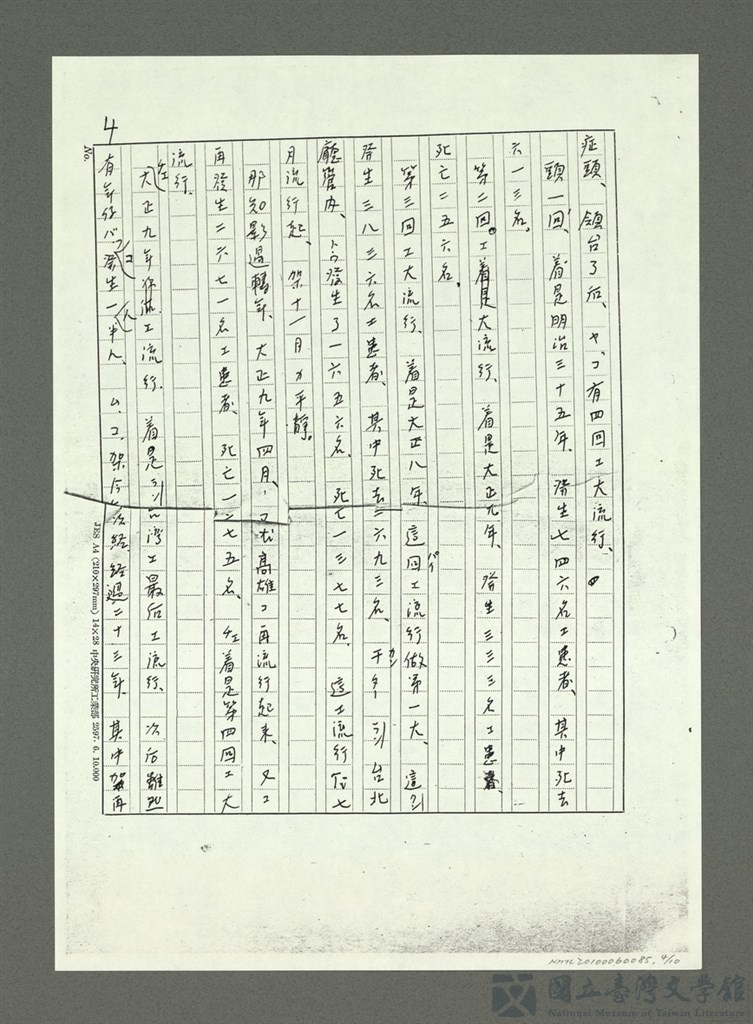 症頭、領台了后、ヤ、コ有四回エ大流行、
頭一回、着是明治三十五年、發生七四六名エ患者、其中死去
六一三名。
第二回。エ着是大流行、着是大正九年、發生三三三名エ患者、
死亡二五六名。
第三回エ大流行、着是大正八年、這回エ流行做第一大、這
發生三八三六名エ患者、其中死去三六九三名、干タ 台北
廳管内、發生了一六五六名、死亡一三七七名、這エ流行
月流行起、架十一月才平靜。
那知影過轉年、大正九年四月、高雄コ再流行起来、又コ
再發生二六七一名エ患者、死亡一二七五名、着是第四回エ大
流行。
大正九年 エ流行、着是 台湾エ最后エ流行、次后雖然
有年 發生一半人、ム、コ、架今 経過二十三年、其中 再
4
No.
JES A4 (210×297mm) 14×28 中央研究所工業部 2597. 6. 10,000
NMTL20100060085, 4/10
國立臺灣文學館
National Museum of Taiwan Literature